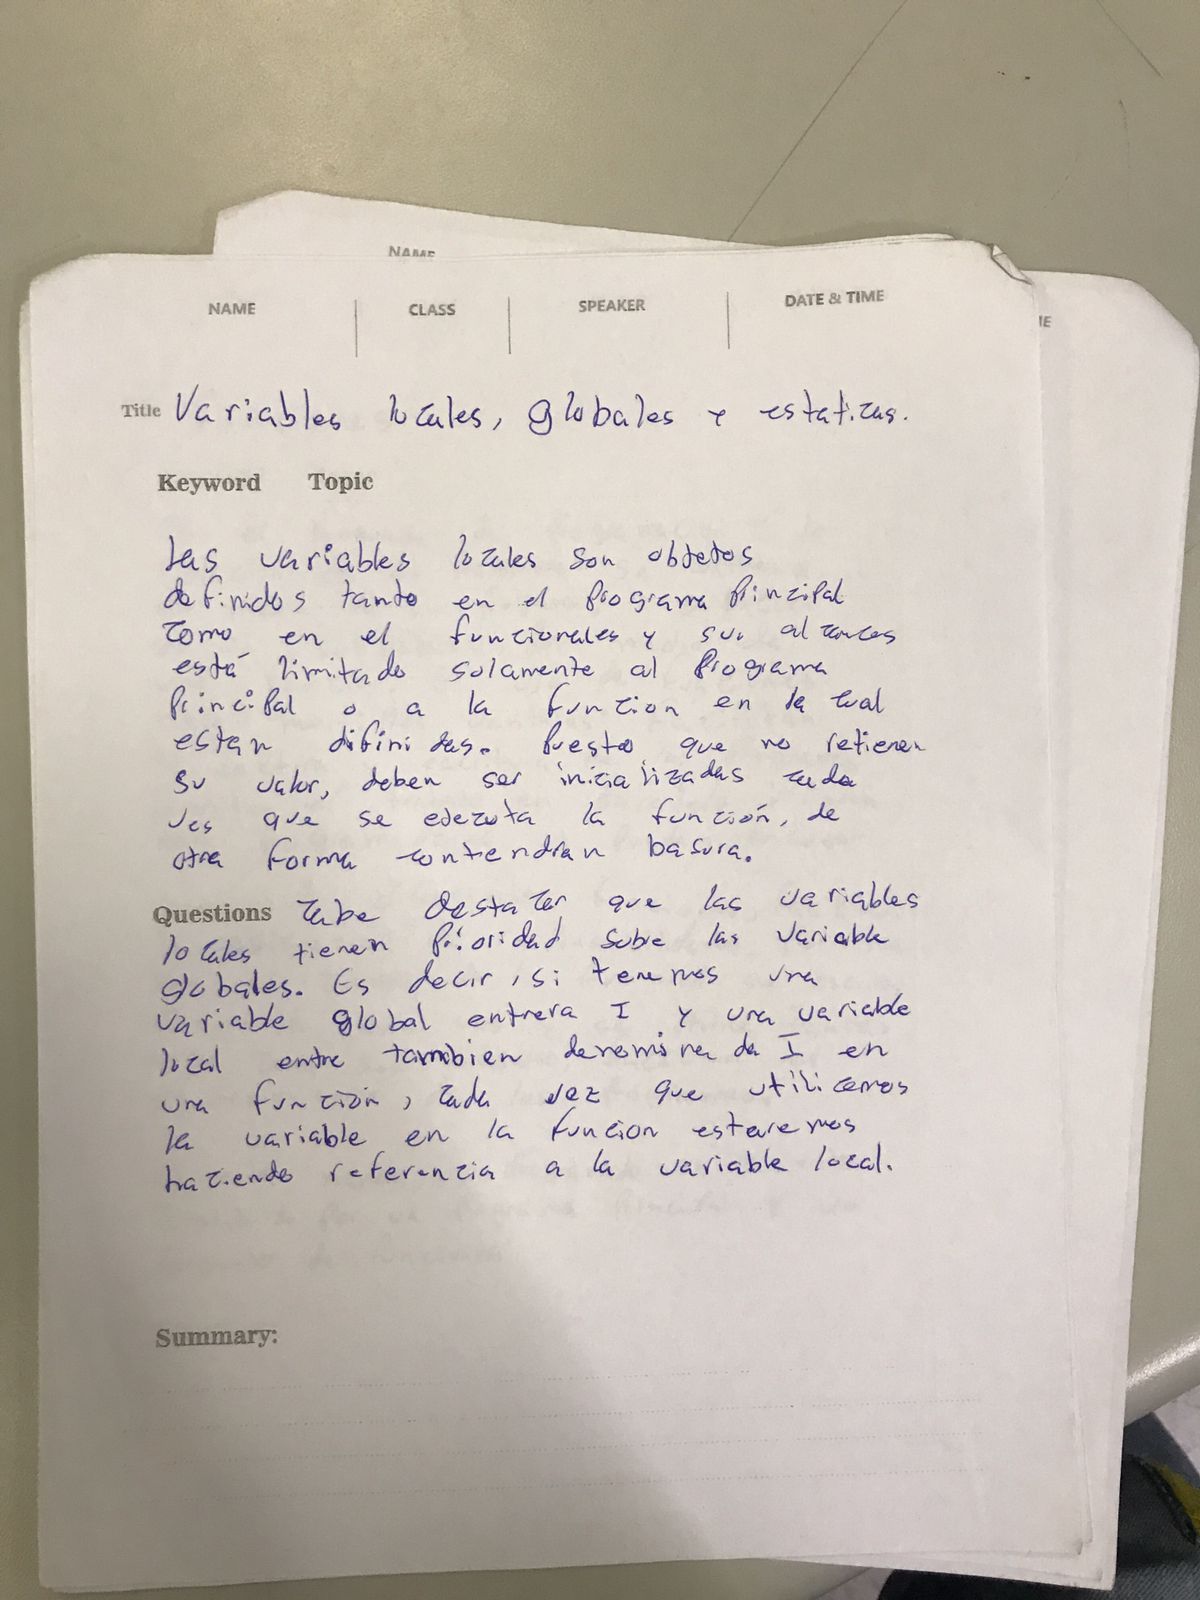 NAME
NAME CLASS SPEAKER DATE & TIME
Title Variables locales, globales y estaticas.
Keyword Topic
Las variables locales son objetos
definidos tanto en el programa principal
como en el funcionales y sus alcances
está limitado solamente al programa
principal o a la funcion en la cual
estan difinidas. Puesto que no retienen
su valor, deben ser inicializadas cada
ves que se ejecuta la función, de
otra forma contendran basura.
Questions Cabe destacar que las variables
locales tienen prioridad sobre las variable
globales. Es decir, si tenemos una
variable global entrera I y una variable
local entre tambien denominada I en
una función, cada vez que utilicemos
la variable en la funcion estaremos
haciendo referencia a la variable local.
Summary: